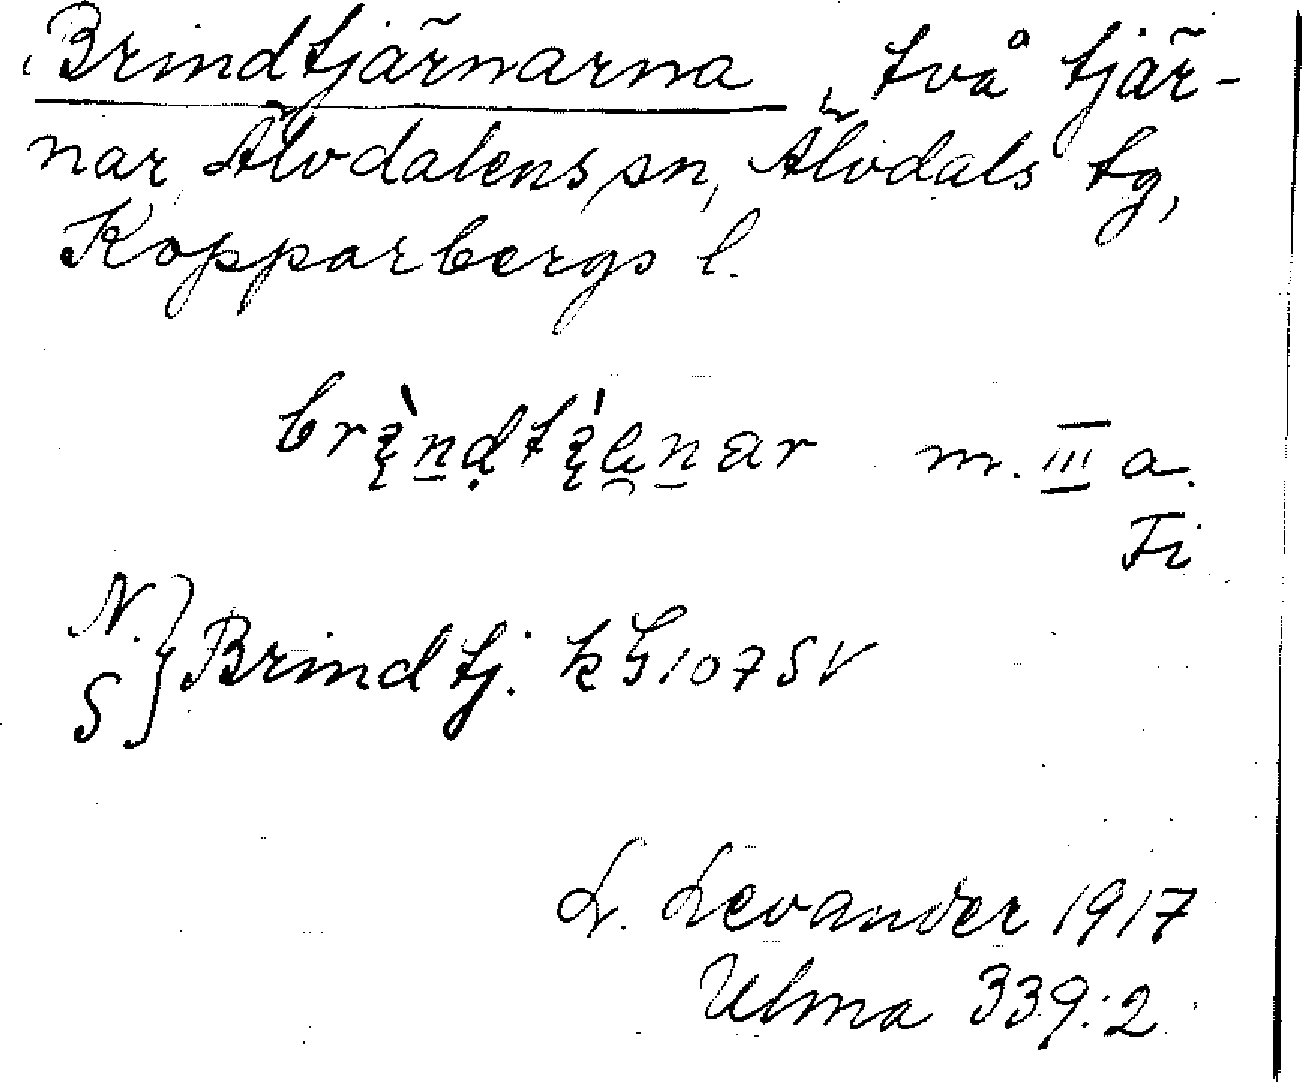 Brindtjärnarna, två tjär-
nar, Älvdalens sn, Älvdals tg,
Kopparbergs l.
m. III a.
Fi
N. } Brindtj. k G 107 SV
S
L. Levander 1917
Ulma 339:2